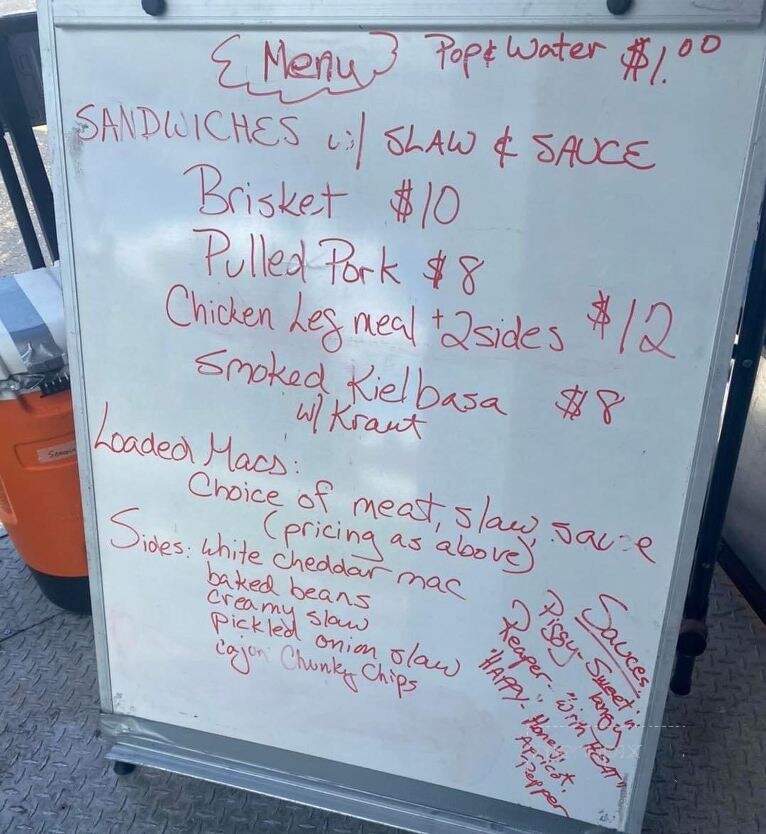 Menu
Pop & Water $1.00
SANDWICHES w/ SLAW & SAUCE
Brisket $10
Pulled Pork $8
Chicken Leg meal +2 sides $12
Smoked Kielbasa $8
w/ Kraut
Loaded Macs:
Choice of meat, slaw, sauce
(pricing as above)
Sides: white cheddar mac
baked beans
creamy slaw
pickled onion slaw
Cajon Chunky Chips
Sauces:
Piggy - Sweet n
tangy
Reaper - "with HEAT"
"HAPPY" - Honey,
Apricot,
Pepper